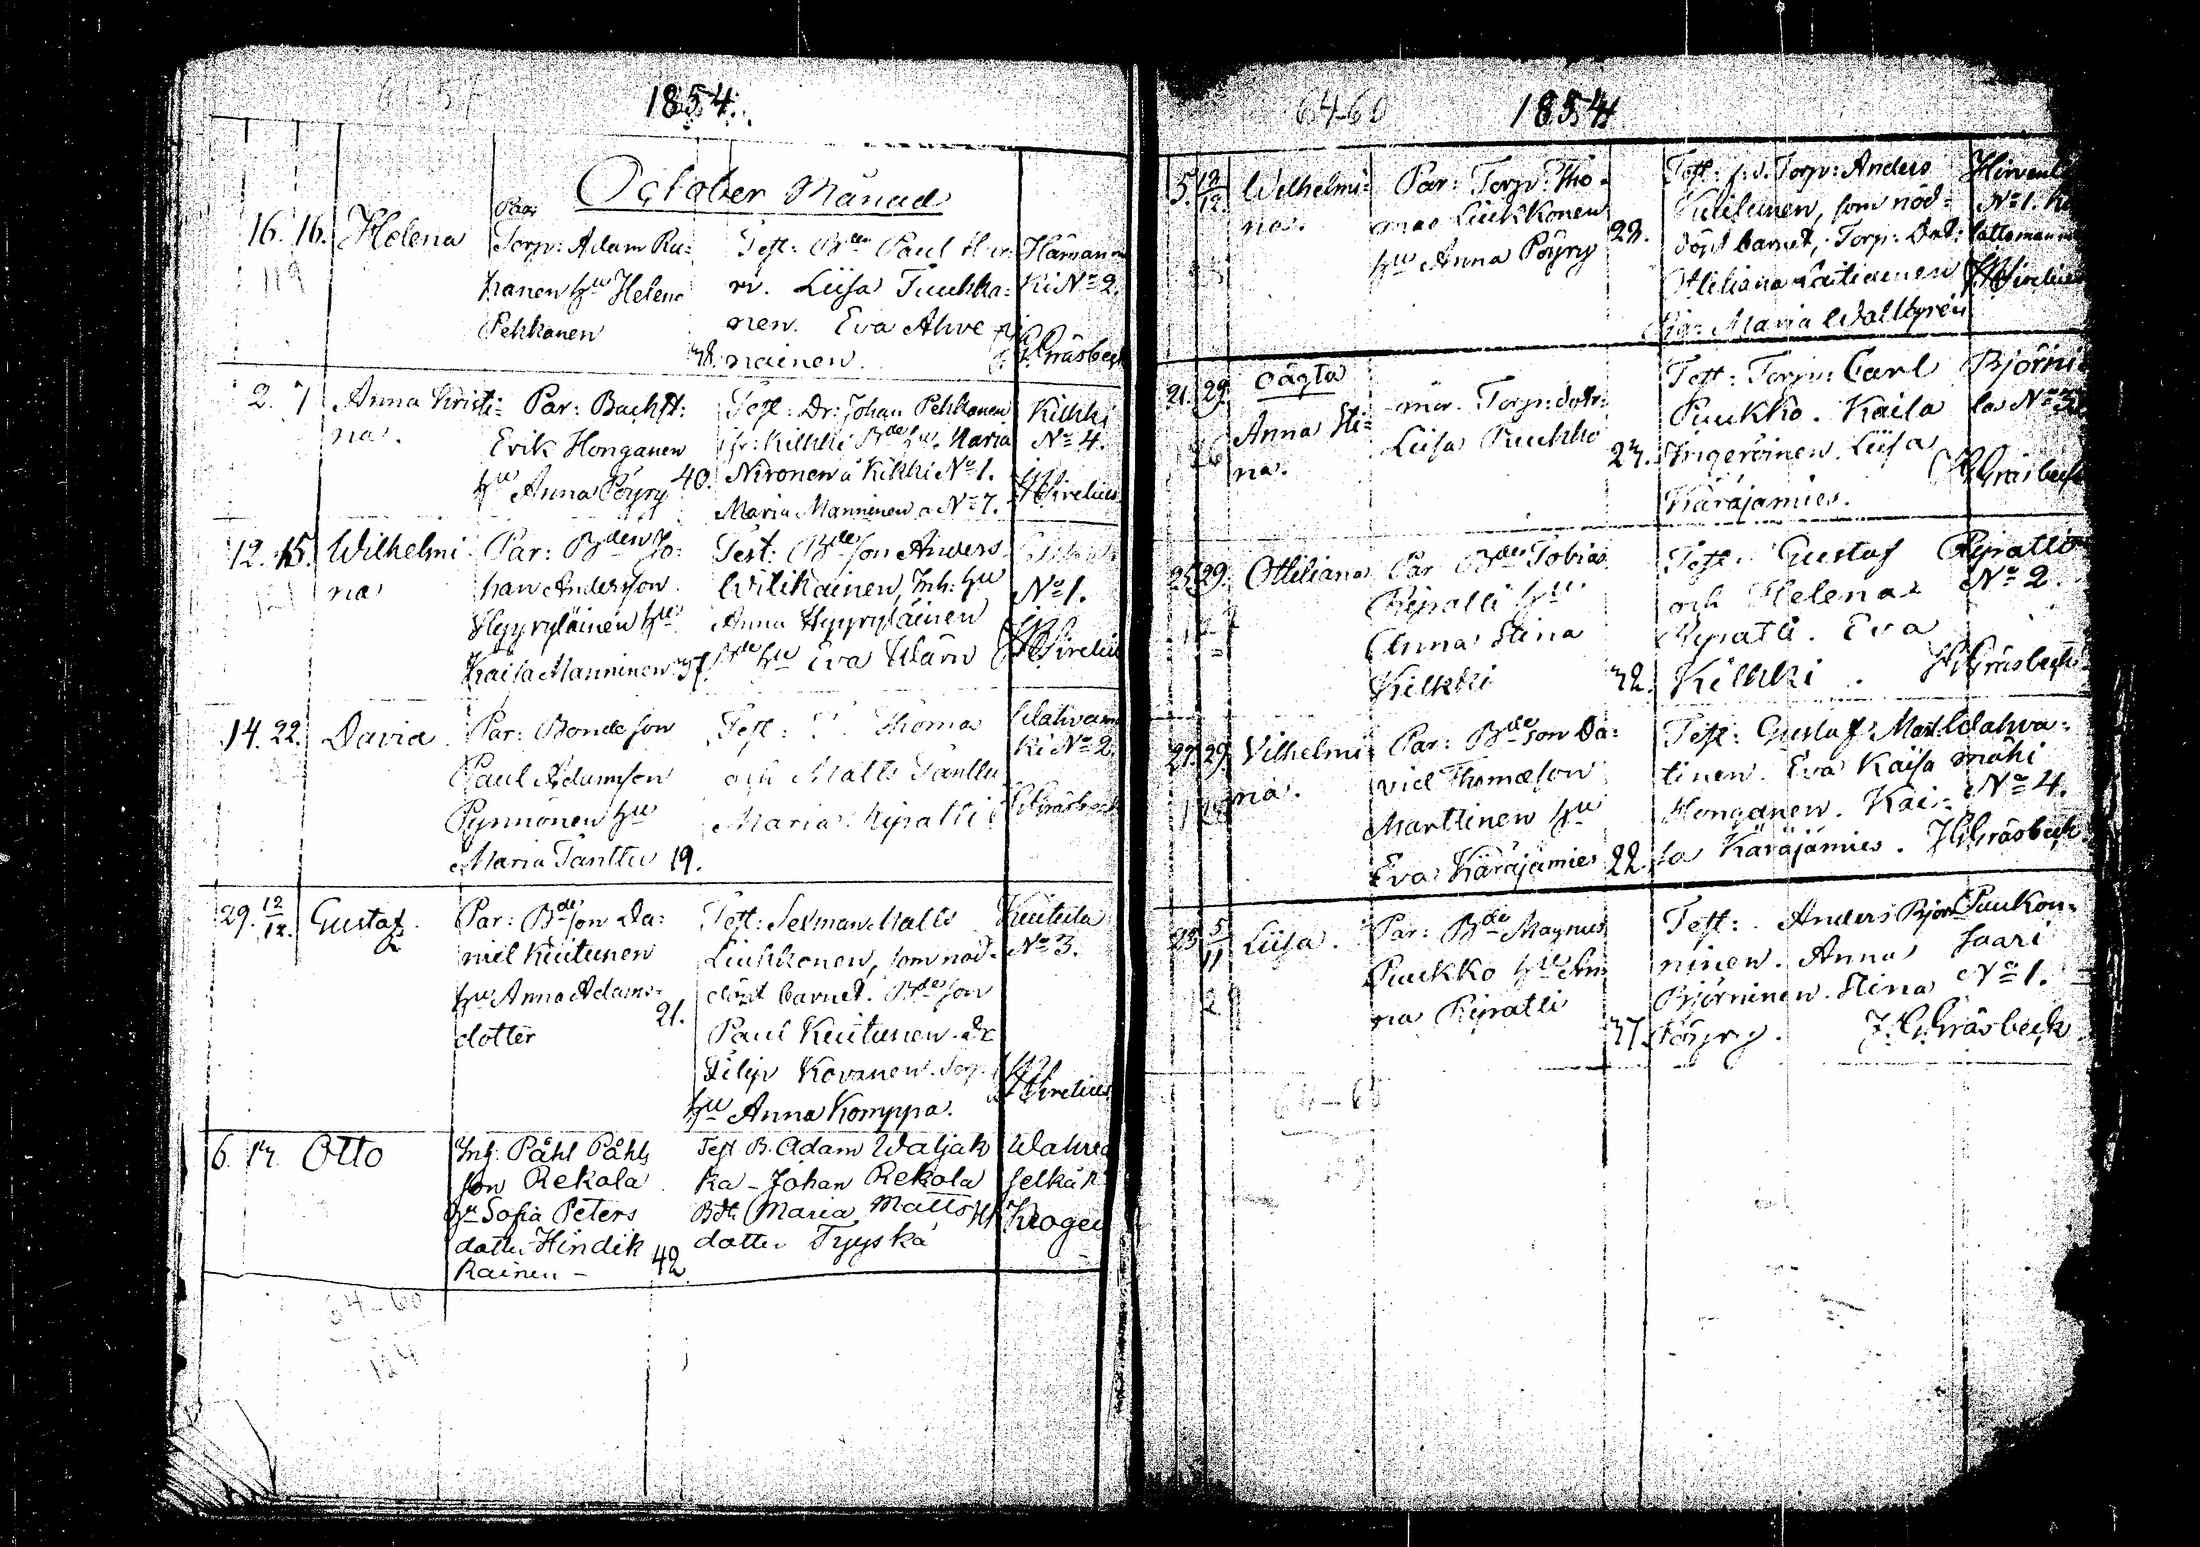 61-57
1854.
October Månad
16. 16. Helena
Par:
Torp: Adam Ru-
hanen hu Helena
Pehkonen
38.
Test: Bden Paul Hur-
ri. Liisa Tuuhka-
nen. Eva Ahve-
nainen.
Hämän-
ki No 2.
Gräsbeck
119
2. 7 Anna Kristi-
na.
Par: Backst:
Erik Honganen
hu Anna Pöyry
40.
Test: Dr: Johan Pehkonen
fr: Kilkki Bde hu Maria
Nironen a Kilkki No 1.
Maria Manninen a No 7.
Kilkki
No 4.
Sirelius
12. 15. Wilhelmi-
na
Par: Bden Jo-
han Andersson
Hyyryläinen hu
Kaisa Manninen 37.
Test: Bdeson Anders
Wilikainen, Inh: hu
Anna Hyyryläinen
Bde hu Eva Wärn
No 1.
Sirelius
14. 22. David
Par: Bondeson
Paul Adamsson
Pynnönen hu
Maria Tanttu 19.
Test: Thomas
och Matts Tanttu
Maria Ripatti
Wahvam-
ki No 2.
Gräsbeck
29. 12/12. Gustaf
Par: Bdeson Da-
niel Kuitunen
hu Anna Adams-
dotter
21.
Test: Sexman Matts
Liukkonen, som nöd-
döpt barnet. Bdeson
Paul Kuitunen. Dr
Filip Kovanen. Torp.
hu Anna Komppa.
Kuitula
No 3.
Sirelius
6. 17. Otto
Inh: Påhl Påhls
son Rekola
hu Sofia Peters
dotter Hindik
kainen -
42
Test B. Adam Waljak
ka - Johan Rekola
Bdt. Maria Matts
dotter Tyyskä
Wahva
selkä
Kroger
64-60
124
64-60
1854
5. 12/12 Wilhelmi-
na.
Par: Torp: Tho-
mas Liukkonen
hu Anna Pöyry
29.
Test: f.d. Torp: Anders
Kuitunen, som nöd-
döpt barnet, Torp: Dot:
Ottiliana Laitiainen
Maria Wallbyren
No 1.
Sirelius
21. 29. oägta
Anna Sti-
na.
mor. Torp:dotr:
Liisa Puukko
27.
Test: Torp: Carl
Puukko. Kaisa
Ingeröinen. Liisa
Käräjämies.
Björni-
las No 3.
Gräsbeck
25. 29. Ottiliana
Par Bden Tobias
Ripatti hu
Anna Stina
Kilkki
32.
Test: Gustaf
och Helena
Ripatti. Eva
Kilkki.
Ripatti
No 2.
Gräsbeck
27. 29. Vilhelmi-
na.
Par: Bdeson Da-
niel Thomæson
Marttinen hu
Eva Käräjämies
22.
Test: Gustaf Mart-
tinen. Eva Kaisa
Honganen. Kai-
sa Käräjämies.
Wahva-
mäki
No 4.
Gräsbeck
23. 5/11 Liisa.
Par: Bde Magnus
Puukko hu An-
na Ripatti
37.
Test: Anders Björ-
ninen. Anna
Björninen. Stina
Pöyry.
Puukon-
saari
No 1.
J. Gräsbeck